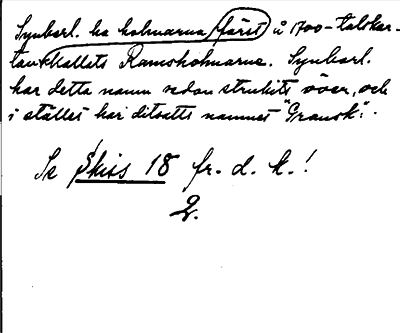 Synbarl. ha holmarna först å 1700-talskar-
tan kallats Ramsholmarne. Synbarl.
har detta namn sedan strukits över, och
i stället har ditsatts namnet "Gransk".
Se Skiss 18 fr. d. k.!
2.